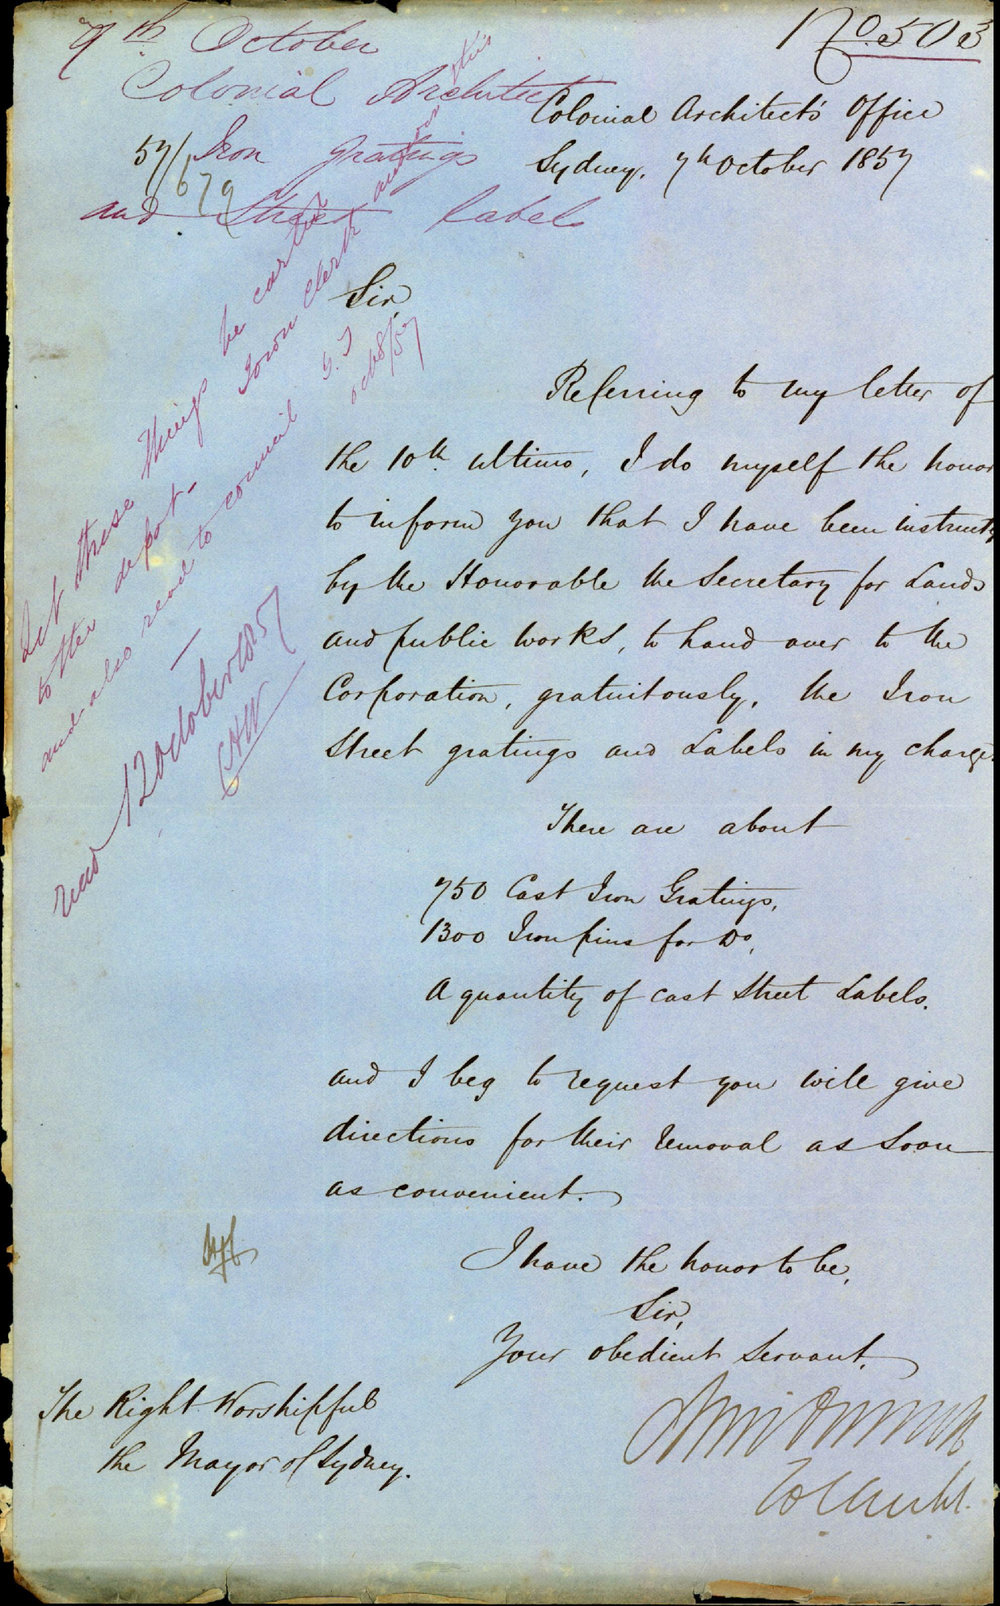 7th October
Colonial Architect
Iron gratings
and Street labels
No. 503
57/679
Colonial Architect's Office
Sydney. 7th October 1857
Sir,
Referring to my letter of
the 10th ultimo, I do myself the honor
to inform you that I have been instructed
by the Honorable the Secretary for Lands
and public Works, to hand over to the
Corporation, gratuitously, the Iron
Street gratings and Labels in my charge.
There are about
750 Cast Iron Gratings,
1300 Iron pins for Do,
A quantity of cast Street Labels.
and I beg to request you will give
directions for their removal as soon
as convenient.
I have the honor to be,
Sir,
Your obedient Servant,
Col Archt.
The Right Worshipful
the Mayor of Sydney.
Let these things be carted
to the depot - Town Clerk answer this
and also read to council
G. T
Oct 8/57
read 12 October 1857
CHW